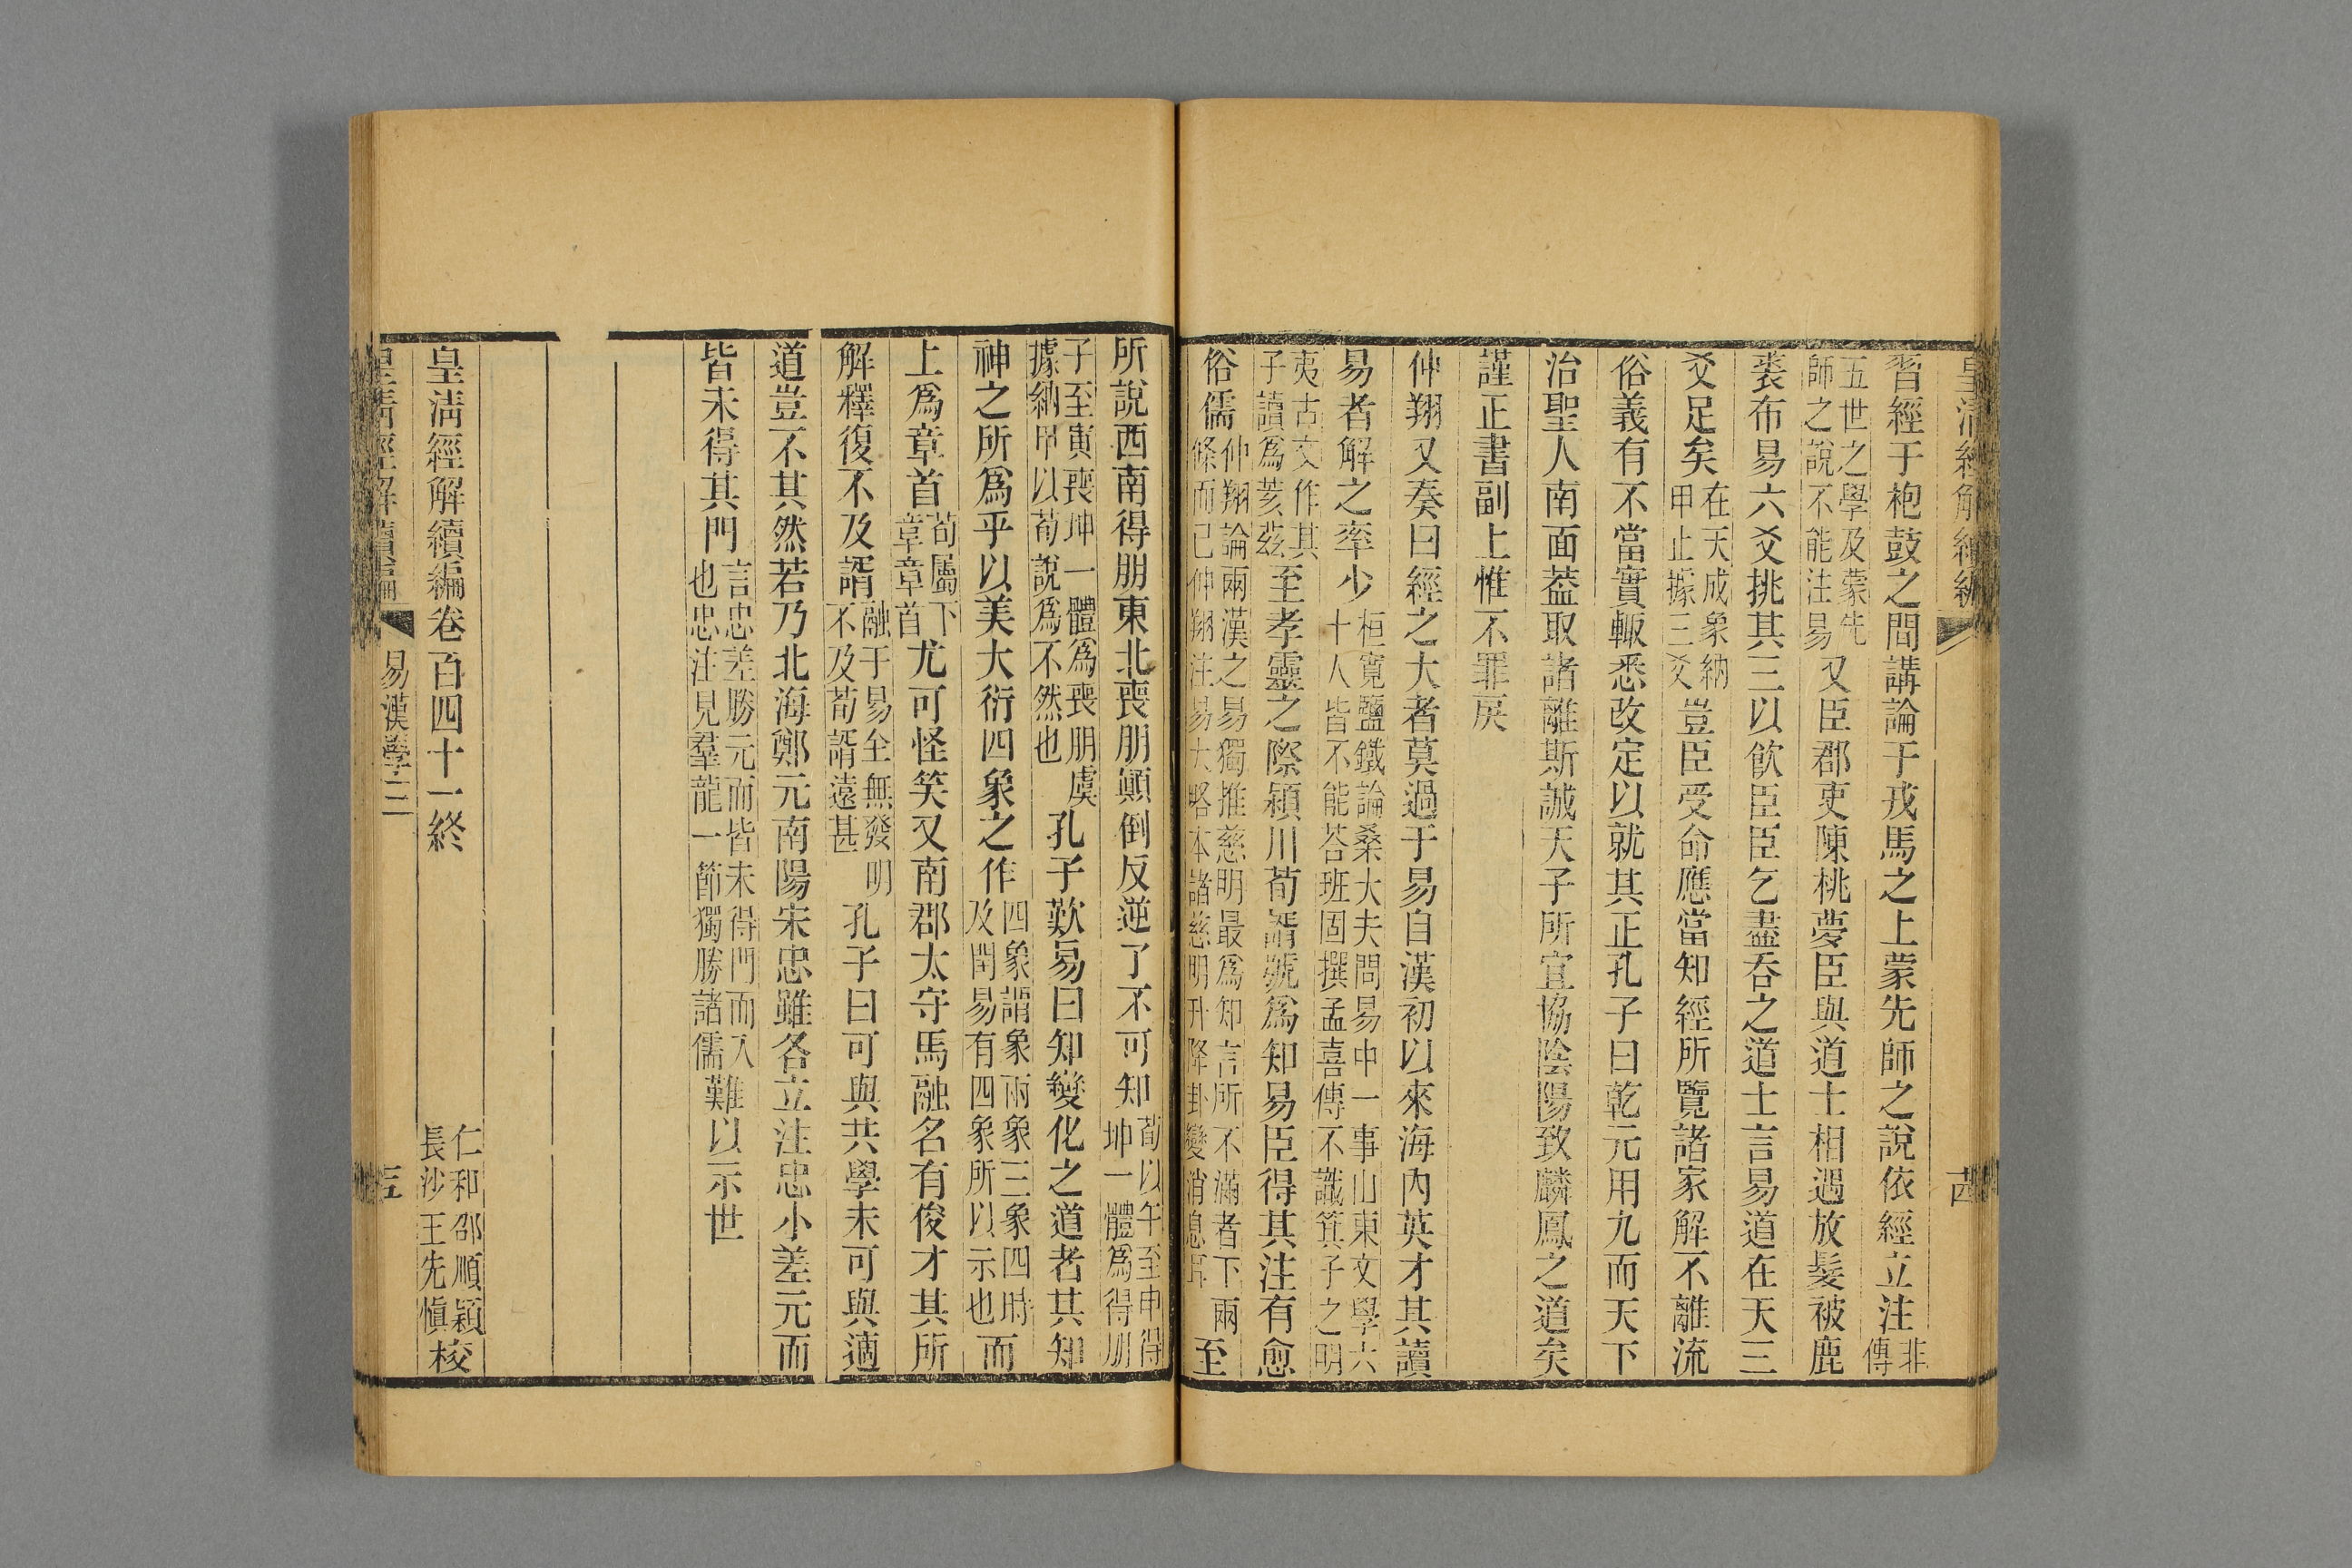 皇清經解續編
習經于枹鼓之間講論于戎馬之上蒙先師之說依經立注非傳
五世之學及蒙先師之說不能注易又臣郡吏陳桃夢臣與道士相遇放髮被鹿
裘布易六爻挑其三以飲臣臣乞盡吞之道士言易道在天三
爻足矣在天成象納甲止據三爻豈臣受命應當知經所覽諸家解不離流
俗義有不當實輙悉改定以就其正孔子曰乾元用九而天下
治聖人南面葢取諸離斯誠天子所宜協陰陽致麟鳳之道矣
謹正書副上惟不罪戾
仲翔又奏曰經之大者莫過于易自漢初以來海內英才其讀
易者解之率少桓寬鹽鐵論桑大夫問易中一事山東文學六十人皆不能荅班固撰孟喜傳不識箕子之明
夷古文作其子讀爲荄茲至孝靈之際潁川荀諝號爲知易臣得其注有愈
俗儒仲翔論兩漢之易獨推慈明最爲知言所不滿者下兩條而已仲翔注易大略本諸慈明升降卦變消息耳至
所說西南得朋東北喪朋顚倒反逆了不可知荀以午至申得坤一體爲得朋
子至寅喪坤一體爲喪朋虞據納甲以荀說爲不然也孔子歎易曰知變化之道者其知
神之所爲乎以美大衍四象之作四象謂象兩象三象四時及閏易有四象所以示也而
上爲章首荀屬下章章首尤可怪笑又南郡太守馬融名有俊才其所
解釋復不及諝融于易全無發明不及荀諝遠甚孔子曰可與共學未可與適
道豈不其然若乃北海鄭元南陽宋忠雖各立注忠小差元而
皆未得其門言忠差勝元而皆未得門而入也忠注見羣龍一節獨勝諸儒難以示世
皇淸經解續編卷百四十一終
仁和邵順穎
長沙王先愼校
易漢學三